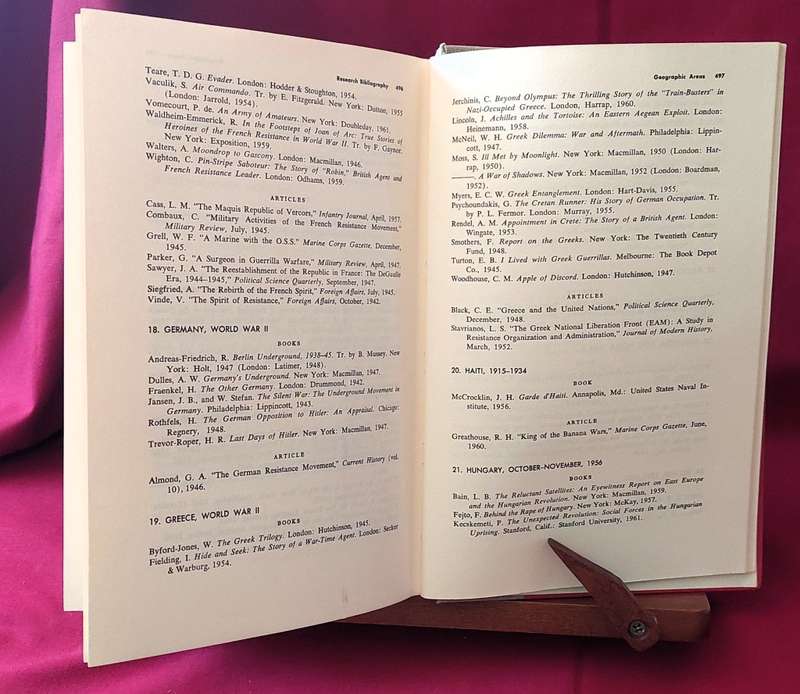 Research Bibliography 496
Teare, T. D. G. Evader. London: Hodder & Stoughton, 1954.
Vaculik, S. Air Commando. Tr. by E. Fitzgerald. New York: Dutton, 1955
(London: Jarrold, 1954).
Vomecourt, P. de. An Army of Amateurs. New York: Doubleday, 1961.
Waldheim-Emmerick, R. In the Footsteps of Joan of Arc: True Stories of
Heroines of the French Resistance in World War II. Tr. by F. Gaynor.
New York: Exposition, 1959.
Walters, A. Moondrop to Gascony. London: Macmillan, 1946.
Wighton, C. Pin-Stripe Saboteur: The Story of "Robin," British Agent and
French Resistance Leader. London: Odhams, 1959.
ARTICLES
Cass, L. M. "The Maquis Republic of Vercors," Infantry Journal, April, 1957.
Combaux, C. "Military Activities of the French Resistance Movement,"
Military Review, July, 1945.
Grell, W. F. "A Marine with the O.S.S." Marine Corps Gazette, December,
1945.
Parker, G. "A Surgeon in Guerrilla Warfare," Military Review, April, 1947.
Sawyer, J. A. "The Reestablishment of the Republic in France: The DeGaulle
Era, 1944–1945," Political Science Quarterly, September, 1947.
Siegfried, A. "The Rebirth of the French Spirit," Foreign Affairs, July, 1945.
Vinde, V. "The Spirit of Resistance," Foreign Affairs, October, 1942.
18. GERMANY, WORLD WAR II
BOOKS
Andreas-Friedrich, R. Berlin Underground, 1938–45. Tr. by B. Mussey. New
York: Holt, 1947 (London: Latimer, 1948).
Dulles, A. W. Germany's Underground. New York: Macmillan, 1947.
Fraenkel, H. The Other Germany. London: Drummond, 1942.
Jansen, J. B., and W. Stefan. The Silent War: The Underground Movement in
Germany. Philadelphia: Lippincott, 1943.
Rothfels, H. The German Opposition to Hitler: An Appraisal. Chicago:
Regnery, 1948.
Trevor-Roper, H. R. Last Days of Hitler. New York: Macmillan, 1947.
ARTICLE
Almond, G. A. "The German Resistance Movement," Current History (vol.
10), 1946.
19. GREECE, WORLD WAR II
BOOKS
Byford-Jones, W. The Greek Trilogy. London: Hutchinson, 1945.
Fielding, I. Hide and Seek: The Story of a War-Time Agent. London: Secker
& Warburg, 1954.
Geographic Areas 497
Jerchinis, C. Beyond Olympus: The Thrilling Story of the "Train-Busters" in
Nazi-Occupied Greece. London, Harrap, 1960.
Lincoln, J. Achilles and the Tortoise: An Eastern Aegean Exploit. London:
Heinemann, 1958.
McNeil, W. H. Greek Dilemma: War and Aftermath. Philadelphia: Lippin-
cott, 1947.
Moss, S. Ill Met by Moonlight. New York: Macmillan, 1950 (London: Har-
rap, 1950).
———. A War of Shadows. New York: Macmillan, 1952 (London: Boardman,
1952).
Myers, E. C. W. Greek Entanglement. London: Hart-Davis, 1955.
Psychoundakis, G. The Cretan Runner: His Story of German Occupation. Tr.
by P. L. Fermor. London: Murray, 1955.
Rendel, A. M. Appointment in Crete: The Story of a British Agent. London:
Wingate, 1953.
Smothers, F. Report on the Greeks. New York: The Twentieth Century
Fund, 1948.
Turton, E. B. I Lived with Greek Guerrillas. Melbourne: The Book Depot
Co., 1945.
Woodhouse, C. M. Apple of Discord. London: Hutchinson, 1947.
ARTICLES
Black, C. E. "Greece and the United Nations," Political Science Quarterly,
December, 1948.
Stavrianos, L. S. "The Greek National Liberation Front (EAM): A Study in
Resistance Organization and Administration," Journal of Modern History,
March, 1952.
20. HAITI, 1915–1934
BOOK
McCrocklin, J. H. Garde d'Haiti. Annapolis, Md.: United States Naval In-
stitute, 1956.
ARTICLE
Greathouse, R. H. "King of the Banana Wars," Marine Corps Gazette, June,
1960.
21. HUNGARY, OCTOBER–NOVEMBER, 1956
BOOKS
Bain, L. B. The Reluctant Satellites: An Eyewitness Report on East Europe
and the Hungarian Revolution. New York: Macmillan, 1959.
Fejto, F. Behind the Rape of Hungary. New York: McKay, 1957.
Kecskemeti, P. The Unexpected Revolution: Social Forces in the Hungarian
Uprising. Stanford, Calif.: Stanford University, 1961.